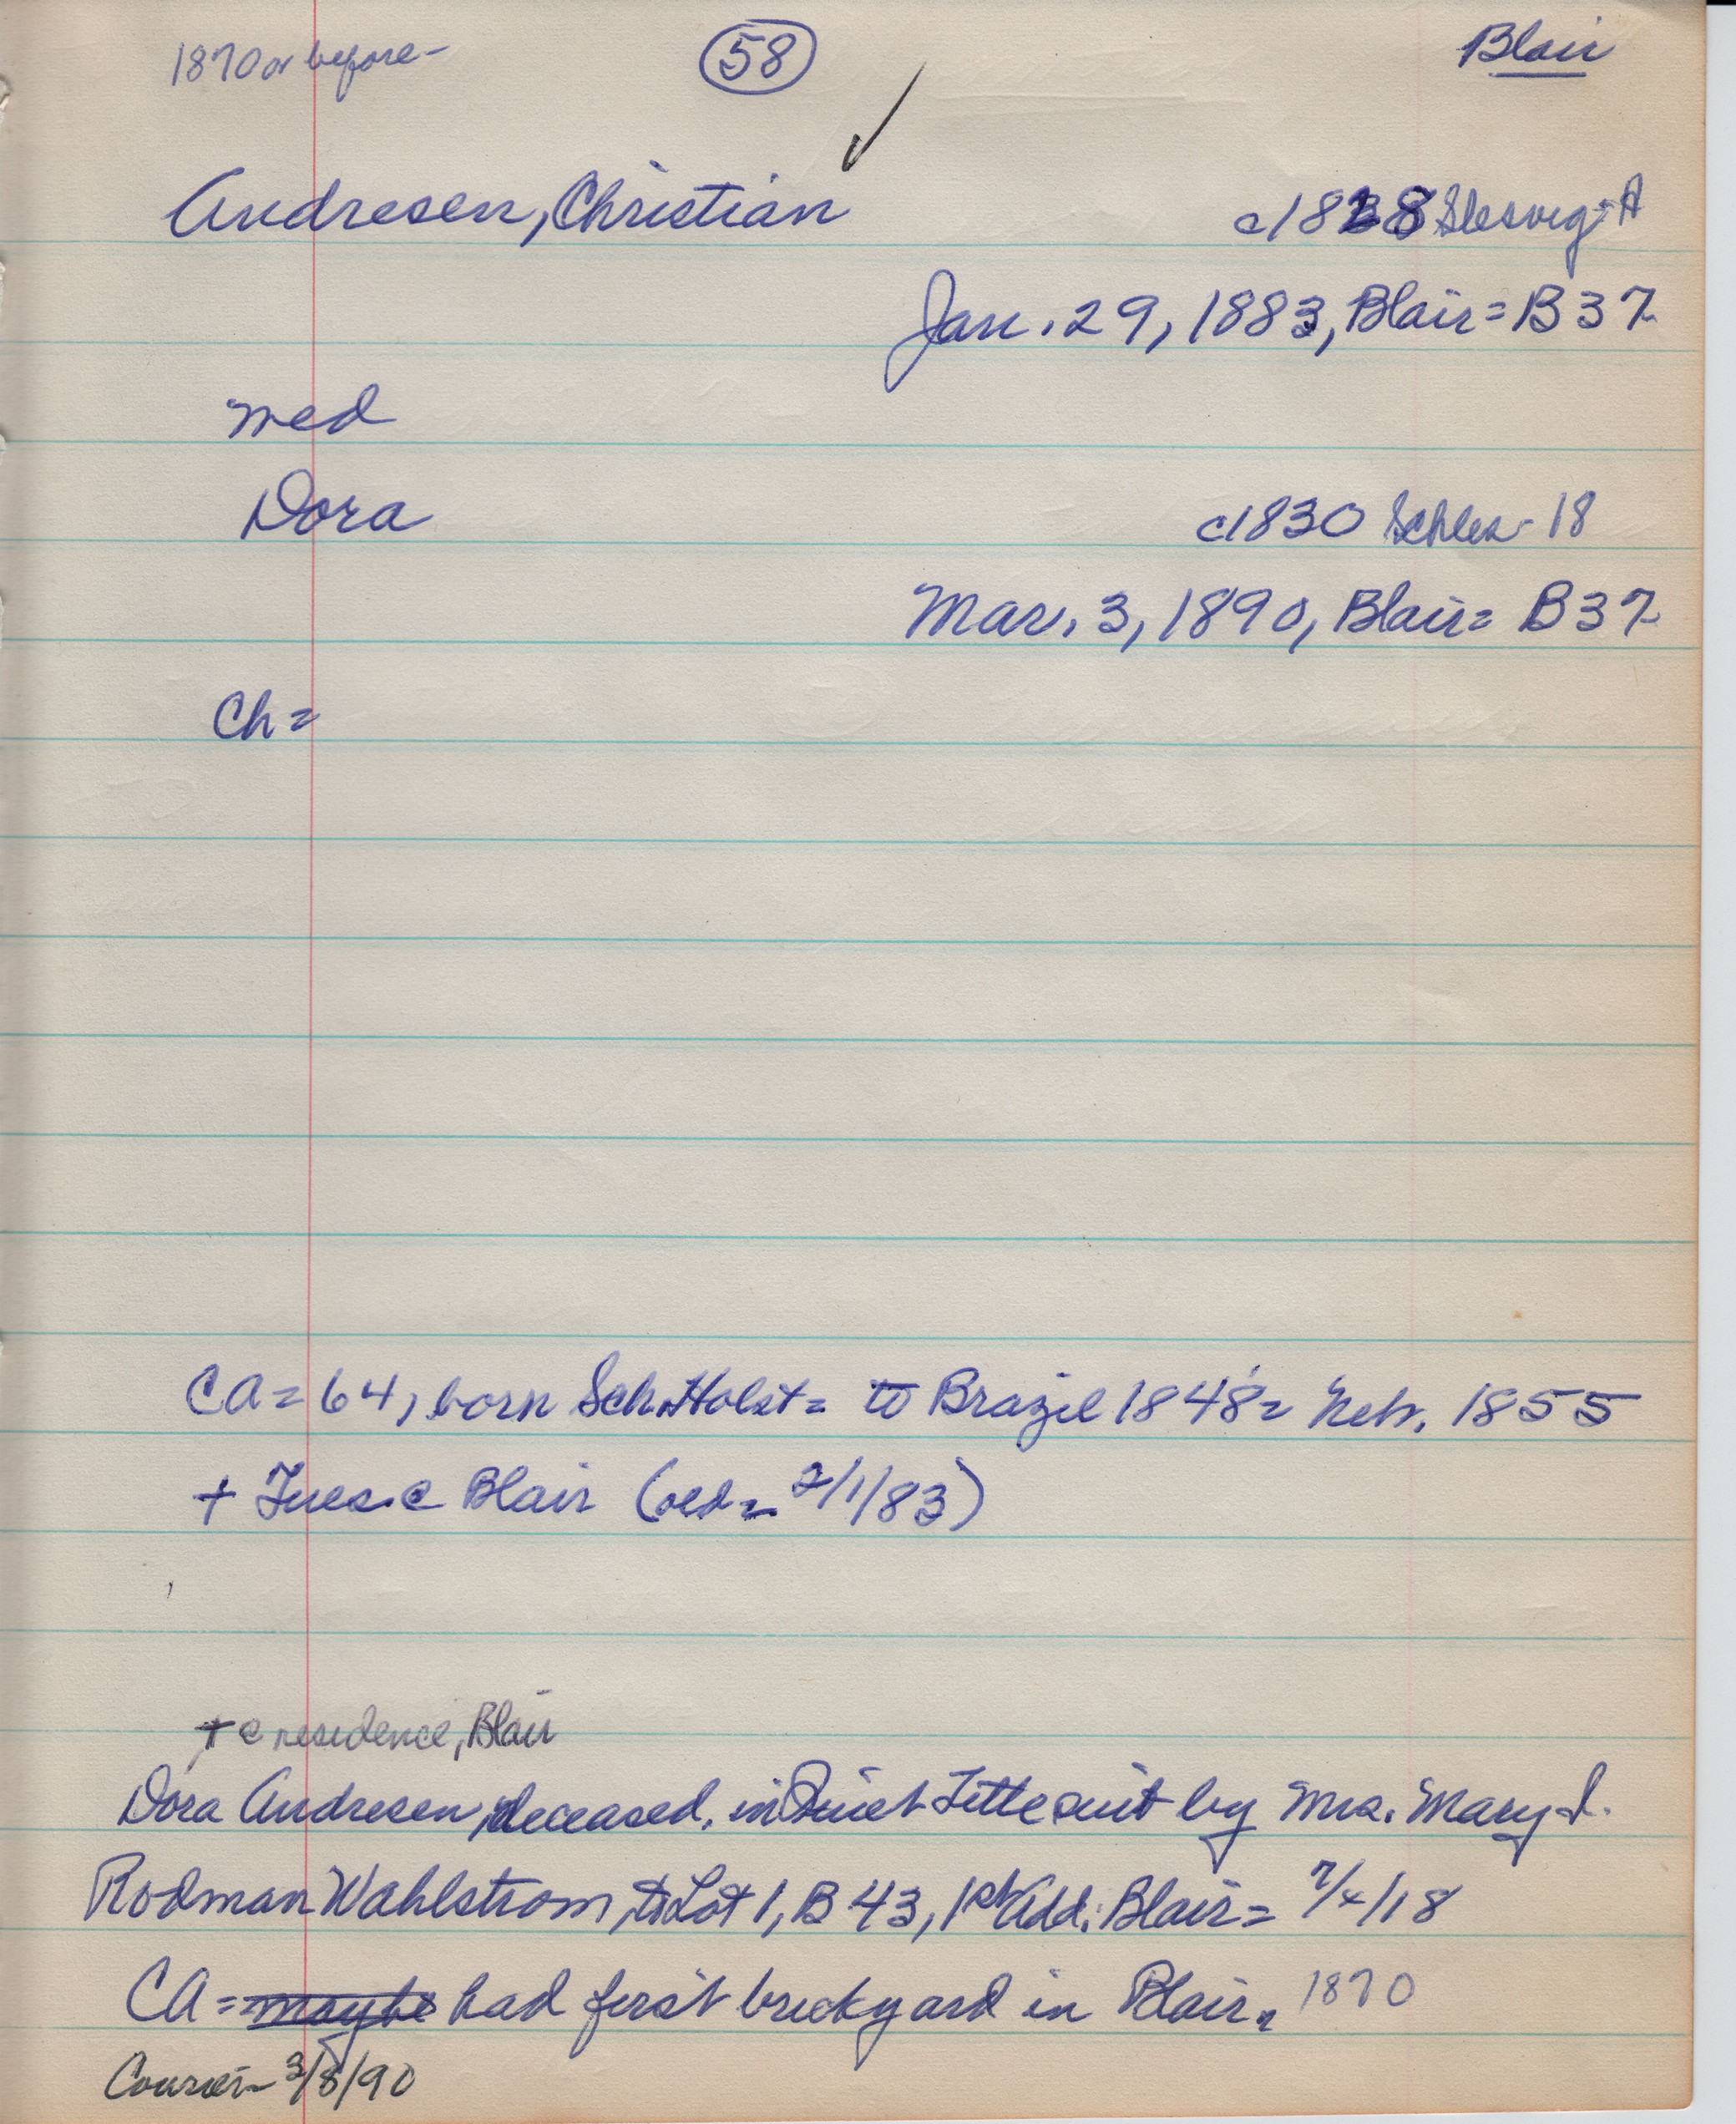 1870 or before-
58
Blair
Andresen, Christian
c1828 Slesvig-A
Jan. 29, 1883, Blair = B37
med
Dora
c1830 Schles- 18
Mar. 3, 1890, Blair = B37
Ch =
CA = 64, born Sch. Holst = to Brazil 1848 = Neb. 1855
+ Tues. @ Blair ( = 2/1/83)
+ @ residence, Blair
Dora Andresen, deceased, in Quiet Title suit by Mrs. Mary I.
Rodman Wahlstrom, to Lot 1, B 43, 1st Add. Blair = 7/4/18
CA = maybe had first brickyard in Blair = 1870
Courier- 3/8/90